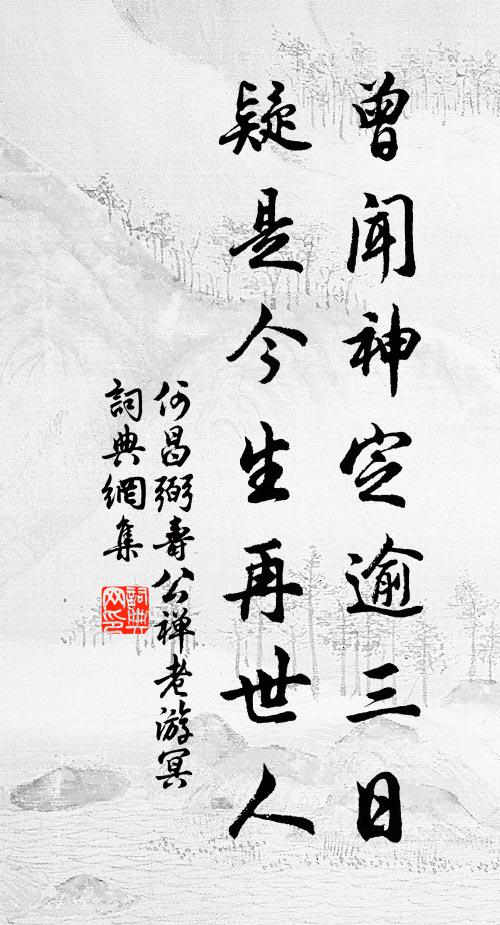 曾闻神定逾三日
疑是今生再世人
何昌弼寿公禅老游冥
詞典網集
詞典
网印